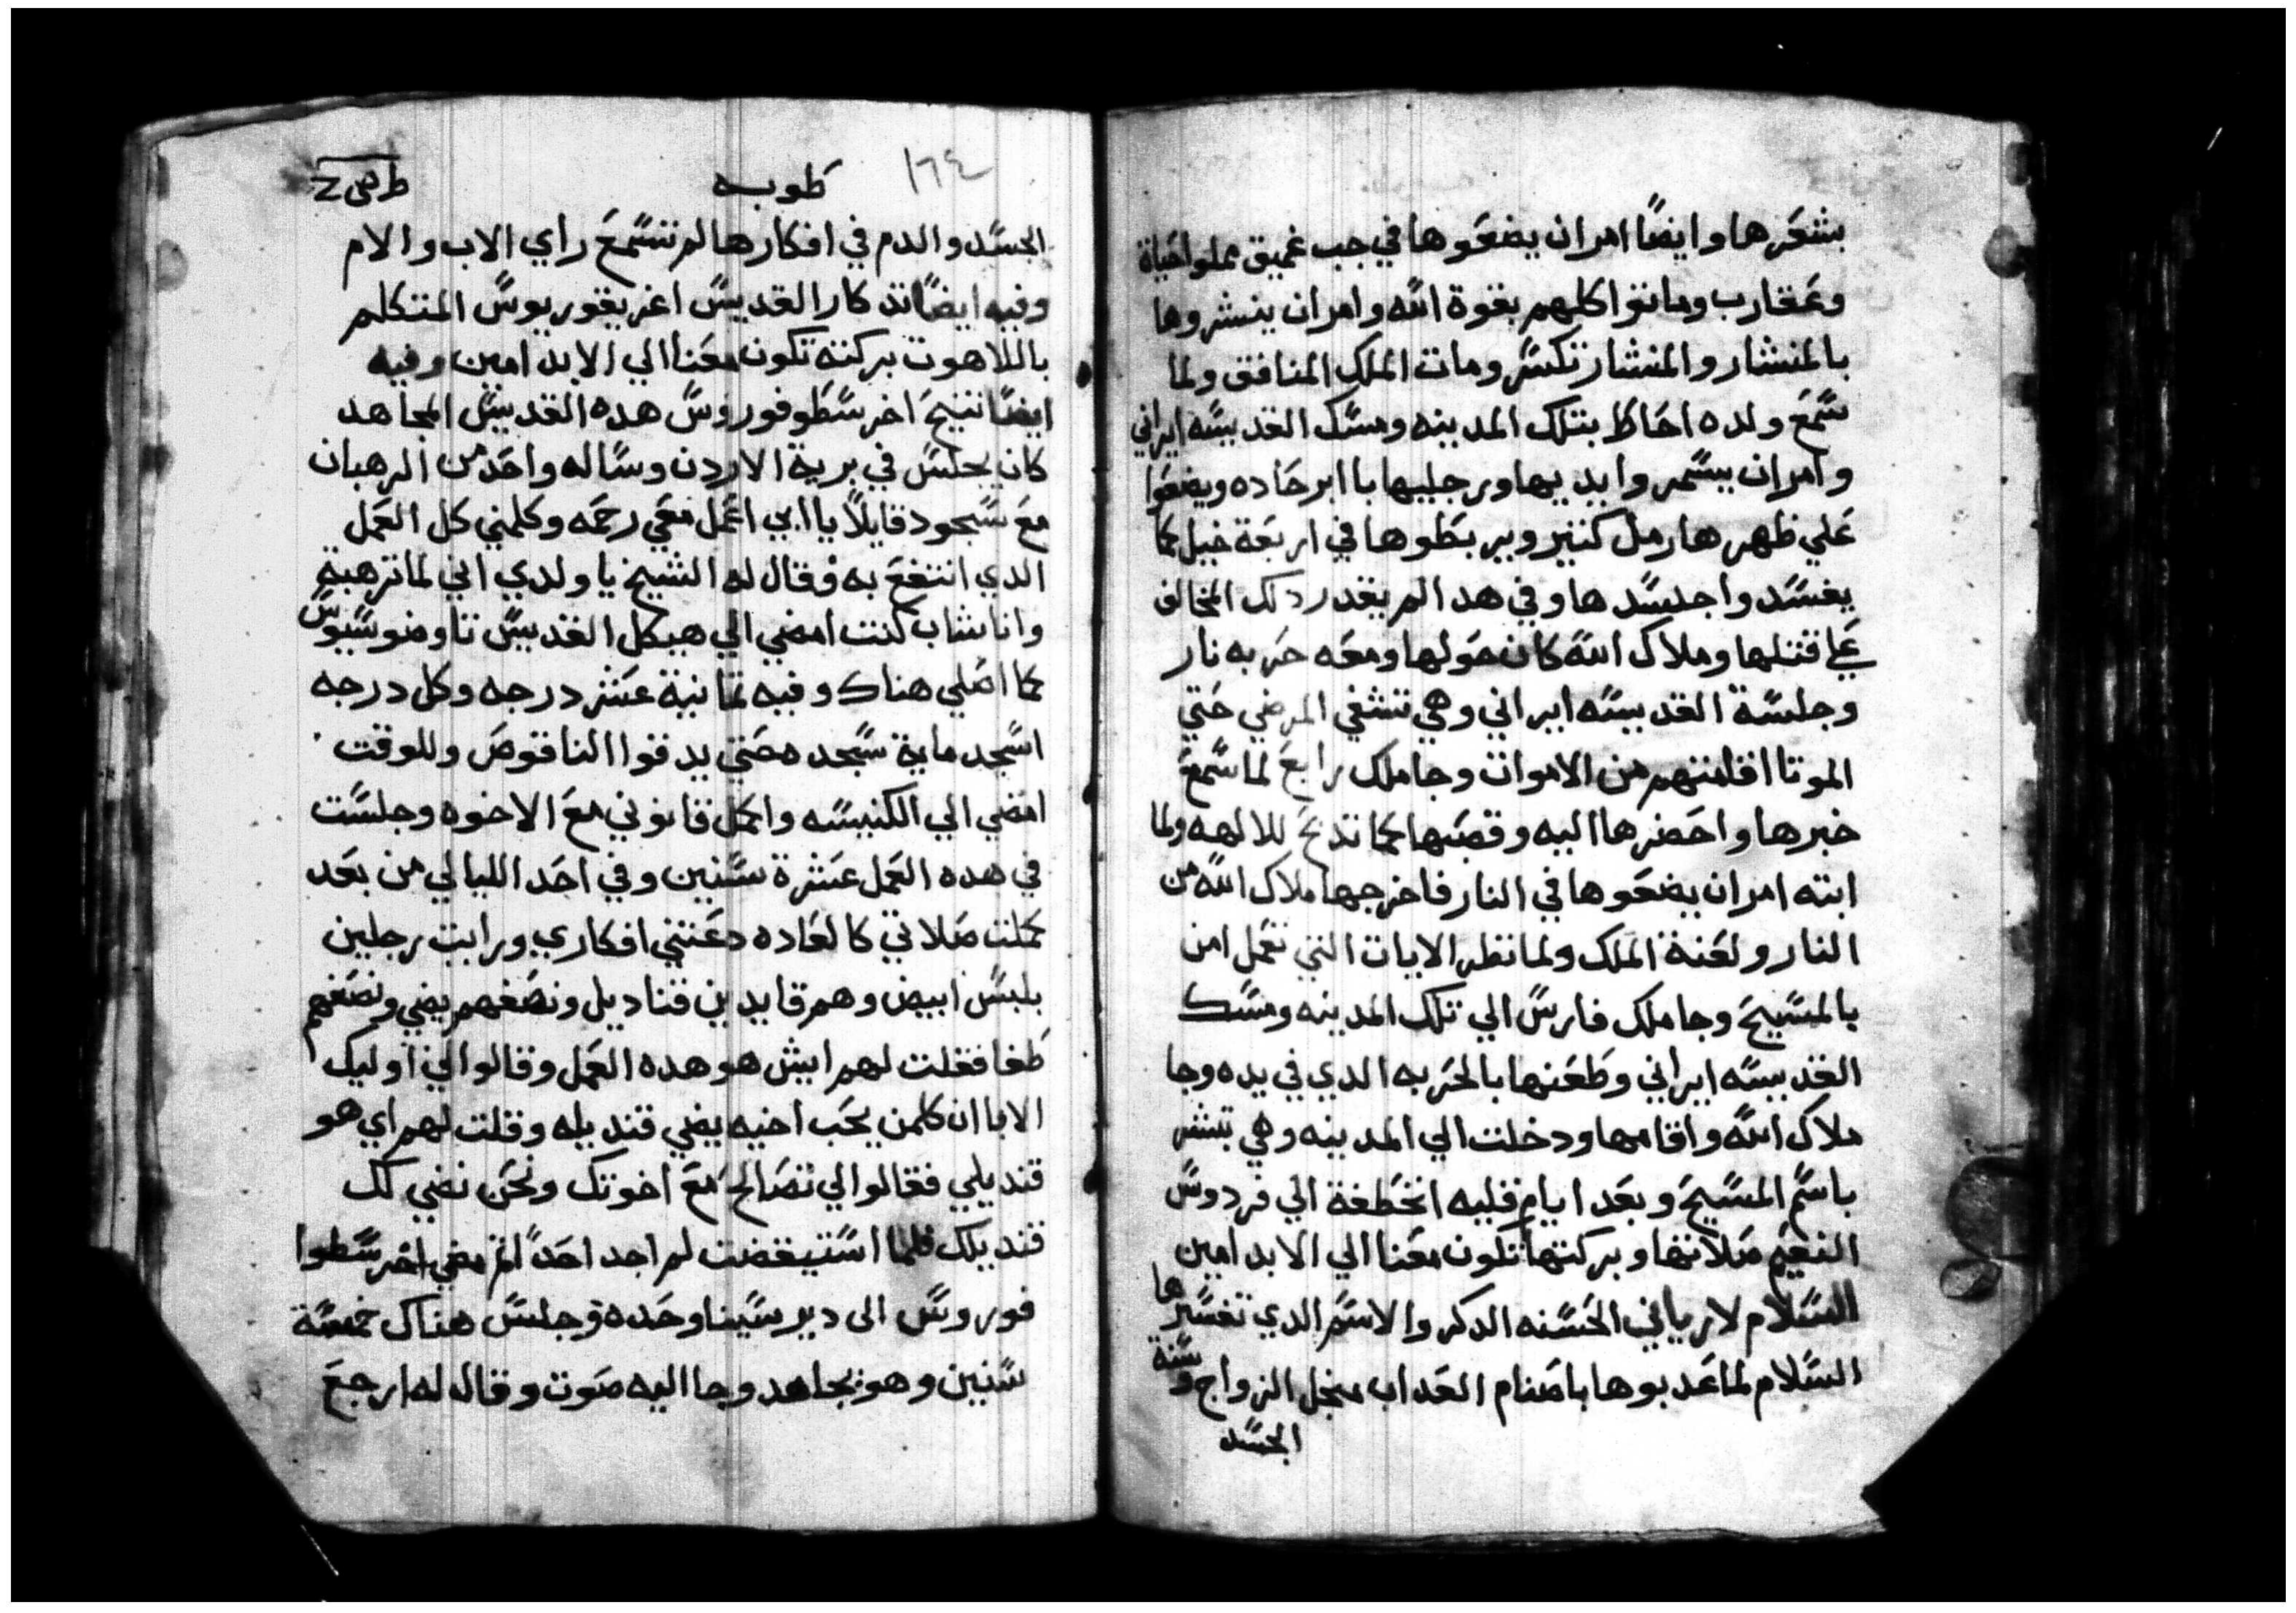 بشعرها وايضًا امر ان يضعوها في جب غميق مملوا حياة
وعقارب وماتوا كلهم بقوة الله وامر ان ينشروها
بالمنشار والمنشار تكسر ومات الملك المنافق ولما
سمع ولده احاط بتلك المدينه ومسك القديسه ايراني
وامر ان يسمروا يديها ورجليها با ابر حاده ويضعوا
علي ظهرها رمل كتير ويربطوها في اربعة خيل كما
يفسدوا جسدها وفي هدا لم يقدر دلك المخالف
علي قتلها وملاك الله كان حولها ومعه حربه نار
وجلسة القديسه ايراني وهي تشفي المرضي حتي
الموتا اقامتهم من الاموات وجا ملك رابع لما سمع
خبرها واحضرها اليه وقصبها كما تدبح للالهه ولما
ابته امر ان يضعوها في النار فاخرجها ملاك الله من
النار ولعنة الملك ولما نظر الايات التي تعمل امن
بالمسيح وجا ملك فارس الي تلك المدينه ومسك
القديسه ايراني وطعنها بالحربه الدي في يده وجا
ملاك الله واقامها ودخلت الي المدينه وهي تبشر
باسم المسيح وبعد ايام قليه انخطفة الي فردوس
النعيم صلاتها وبركتها تكون معنا الي الابد امين
السلام لارياني الحسنه الدكر والاسم الدي تفسيرها
السلام لما عدبوها باصنام العداب منجل الزواج وسنة
الجسد
١٦٤
طوبه
الجسد والدم في افكارها لم تسمع راي الاب والام
وفيه ايضًا تدكار القديس اغريغوريوس المتكلم
باللاهوت بركته تكون معنا الي الابد امين وفيه
ايضًا تنيح اخرسطوفوروس هده القديس المجاهد
كان يجلس في برية الاردن وساله واحد من الرهبان
مع سجود قايلاً يا ابي اعمل معي رحمه وكلمني كل العمل
الدي انتفع به وقال له الشيخ يا ولدي اني لما ترهبة
وانا شاب كنت امضي الي هيكل القديس تاوضوسيوس
كما اصلي هناك وفيه تمانية عشر درجه وكل درجه
اسجد ماية سجده حتي يدقوا الناقوص وللوقت
امضي الي الكنيسه واكمل قانوني مع الاخوه وجلست
في هده العمل عشرة سنين وفي احد الليالي من بعد
كملت صلاتي كالعاده دعتني افكاري ورايت رجلين
بلبس ابيض وهم قايدين قناديل ونصفهم يضي ونصفهم
طفا فقلت لهم ايش هو هده العمل وقالوا لي اوليك
الابا ان كلمن يحب اخيه يضي قنديله وقلت لهم اي هو
قنديلي فقالوا لي تصالح مع اخوتك ونحن نضي لك
قنديلك فلما استيقضت لم اجد احدًا تم مضي اخرسطوا
فوروس الى دير سينا وحده وجلس هناك خمسة
سنين وهو يجاهد وجا اليه صوت وقال له ارجع